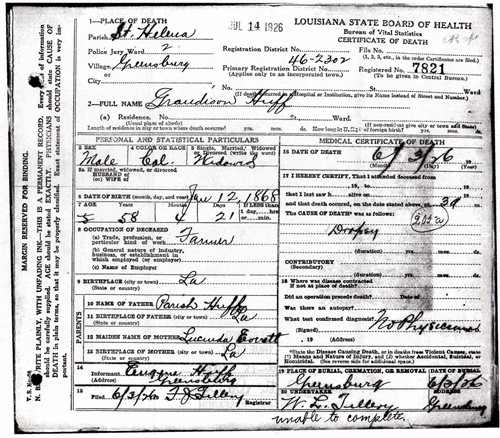 JUL 14 1926
LOUISIANA STATE BOARD OF HEALTH
Bureau of Vital Statistics
CERTIFICATE OF DEATH
1—PLACE OF DEATH
Parish St. Helena
Police Jury Ward 2
Village Greensburg
City
Registration District No. 46-2302
Primary Registration District No.
(Applies only to an incorporated town.)
File No.
Registered No. 7821
(To be given in Central Bureau.)
(If death occurred in a Hospital or Institution, give its Name instead of Street and Number.)
2—FULL NAME Grandison Huff
(a) Residence. No.
(Usual place of abode)
Length of residence in city or town where death occurred yrs. mos. ds.
PERSONAL AND STATISTICAL PARTICULARS
3 SEX
Male
4 COLOR OR RACE
Col.
5 Single, Married, Widowed, or Divorced (write the word)
Widowed
5a If married, widowed, or divorced
HUSBAND of
(or) WIFE of
6 DATE OF BIRTH (month, day, and year) Jan 12 1868
7 AGE
58 4 21
If LESS than
1 day, ...hrs.
or ...min.
8 OCCUPATION OF DECEASED
(a) Trade, profession, or
particular kind of work Farmer
(b) General nature of industry,
business, or establishment in
which employed (or employer)
(c) Name of Employer
9 BIRTHPLACE (city or town) La
(State or country)
PARENTS
10 NAME OF FATHER Parish Huff
11 BIRTHPLACE OF FATHER (city or town) La
(State or country)
12 MAIDEN NAME OF MOTHER Lucinda
13 BIRTHPLACE OF MOTHER (city or town) La
(State or country)
14
Informant Eugene Huff
Greensburg
15
Filed 6/3/26 T J Tillery
Registrar
MEDICAL CERTIFICATE OF DEATH
16 DATE OF DEATH 6/ 3/26
(Month) (Day) (Year)
17 I HEREBY CERTIFY, That I attended deceased from
19 , to , 19
that I last saw h alive on , 19
and that death occurred, on the date stated above, at
The CAUSE OF DEATH* was as follows:
Dropsy
(duration) yrs. mos. ds.
CONTRIBUTORY
(Secondary)
(duration) yrs. mos. ds.
18 Where was disease contracted
if not at place of death?
Did an operation precede death? Date of
Was there an autopsy?
What test confirmed diagnosis?
(Signed) No Physician
, 19 (Address)
*State the Disease Causing Death, or in deaths from Violent Causes, state
(1) Means and Nature of Injury, and (2) whether Accidental, Suicidal, or
Homicidal. (See reverse side for additional space).
19 PLACE OF BURIAL, CREMATION, OR REMOVAL
Greensburg
DATE OF BURIAL
6/3/26
20 UNDERTAKER
W. L. Tillery
Address
Greensburg
unable to complete.
MARGIN RESERVED FOR BINDING.